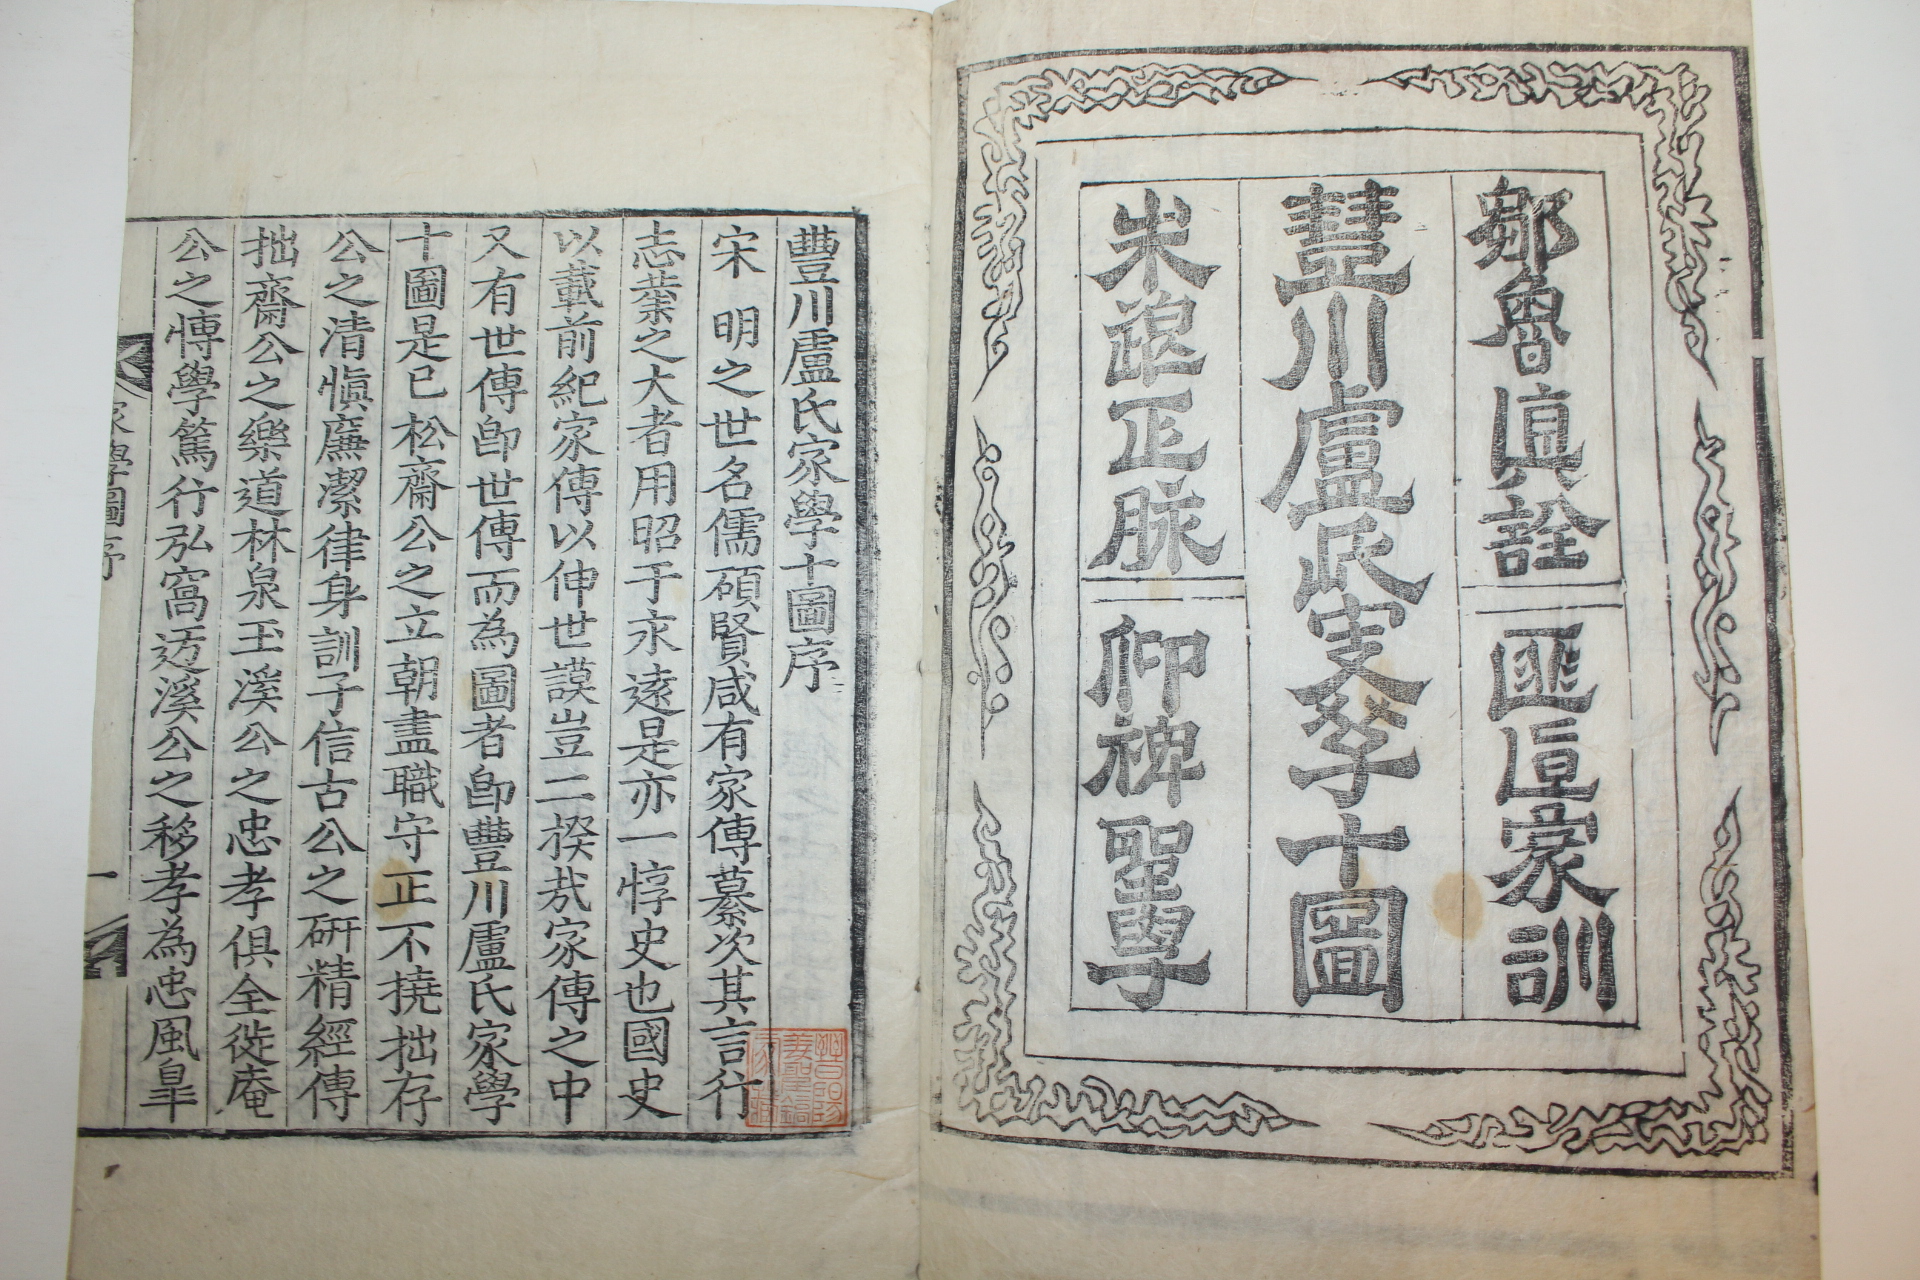 鄒魯眞詮 匪家訓
豐川盧氏家斈十圖
朱正脉 仰裨聖學
豐川盧氏家學十圖序
宋 明之世名儒碩賢咸有家傳纂次其言行
志業之大者用昭于永遠是亦一惇史也國史
以載前紀家傳以伸世謨豈二揆哉家傳之中
又有世傳卽世傳而為圖者卽豐川盧氏家學
十圖是已松齋公之立朝盡職守正不撓拙存
公之清愼廉潔律身訓子信古公之硏精經傳
拙齋公之樂道林泉玉溪公之忠孝俱全徙庵
公之博學篤行弘窩迃溪公之移孝為忠風臯
家學圖序 一